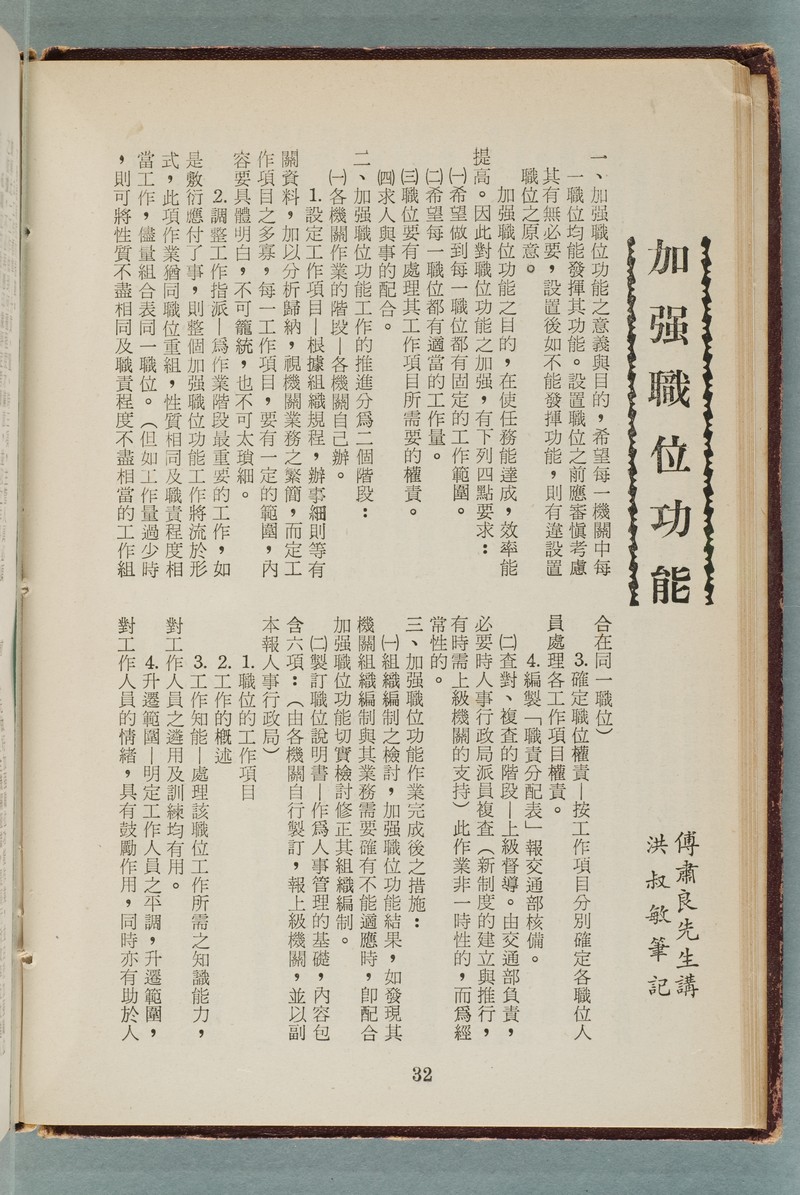 加强職位功能
傅肅良先生講
洪叔敏筆記
一、加强職位功能之意義與目的，希望每一機關中每
一職位均能發揮其功能。設置職位之前應審愼考慮
其有無必要，設置後如不能發揮功能，則有違設置
職位之原意。
加强職位功能之目的，在使任務能達成，效率能
提高。因此對職位功能之加强，有下列四點要求：
㈠希望做到每一職位都有固定的工作範圍。
㈡希望每一職位都有適當的工作量。
㈢職位要有處理其工作項目所需要的權責。
㈣求人與事的配合。
二、加强職位功能工作的推進分爲二個階段：
㈠各機關作業的階段—各機關自己辦。
1.設定工作項目—根據組織規程，辦事細則等有
關資料，加以分析歸納，視機關業務之繁簡，而定工
作項目之多寡，每一工作項目，要有一定的範圍，內
容要具體明白，不可籠統，也不可太瑣細。
2.調整工作指派—爲作業階段最重要的工作，如
是敷衍應付了事，則整個加强職位功能工作將流於形
式，此項作業猶同職位重組，性質相同及職責程度相
當工作，儘量組合表同一職位。（但如工作量過少時
，則可將性質不盡相同及職責程度不盡相當的工作組
合在同一職位）
3.確定職位權責—按工作項目分別確定各職位人
員處理各工作項目權責。
4.編製「職責分配表」報交通部核備。
㈡查對、複查的階段—上級督導。由交通部負責，
必要時人事行政局派員複查（新制度的建立與推行，
有時需上級機關的支持）此作業非一時性的，而爲經
常性的。
三、加强職位功能作業完成後之措施：
㈠組織編制之檢討，加强職位功能結果，如發現其
機關組織編制與其業務需要確有不能適應時，卽配合
加强職位功能切實檢討修正其組織編制。
㈡製訂職位說明書—作爲人事管理的基礎，內容包
含六項：（由各機關自行製訂，報上級機關，並以副
本報人事行政局）
1.職位的工作項目
2.工作的槪述
3.工作知能—處理該職位工作所需之知識能力，
對工作人員之遴用及訓練均有用。
4.升遷範圍—明定工作人員之平調，升遷範圍，
對工作人員的情緒，具有鼓勵作用，同時亦有助於人
32